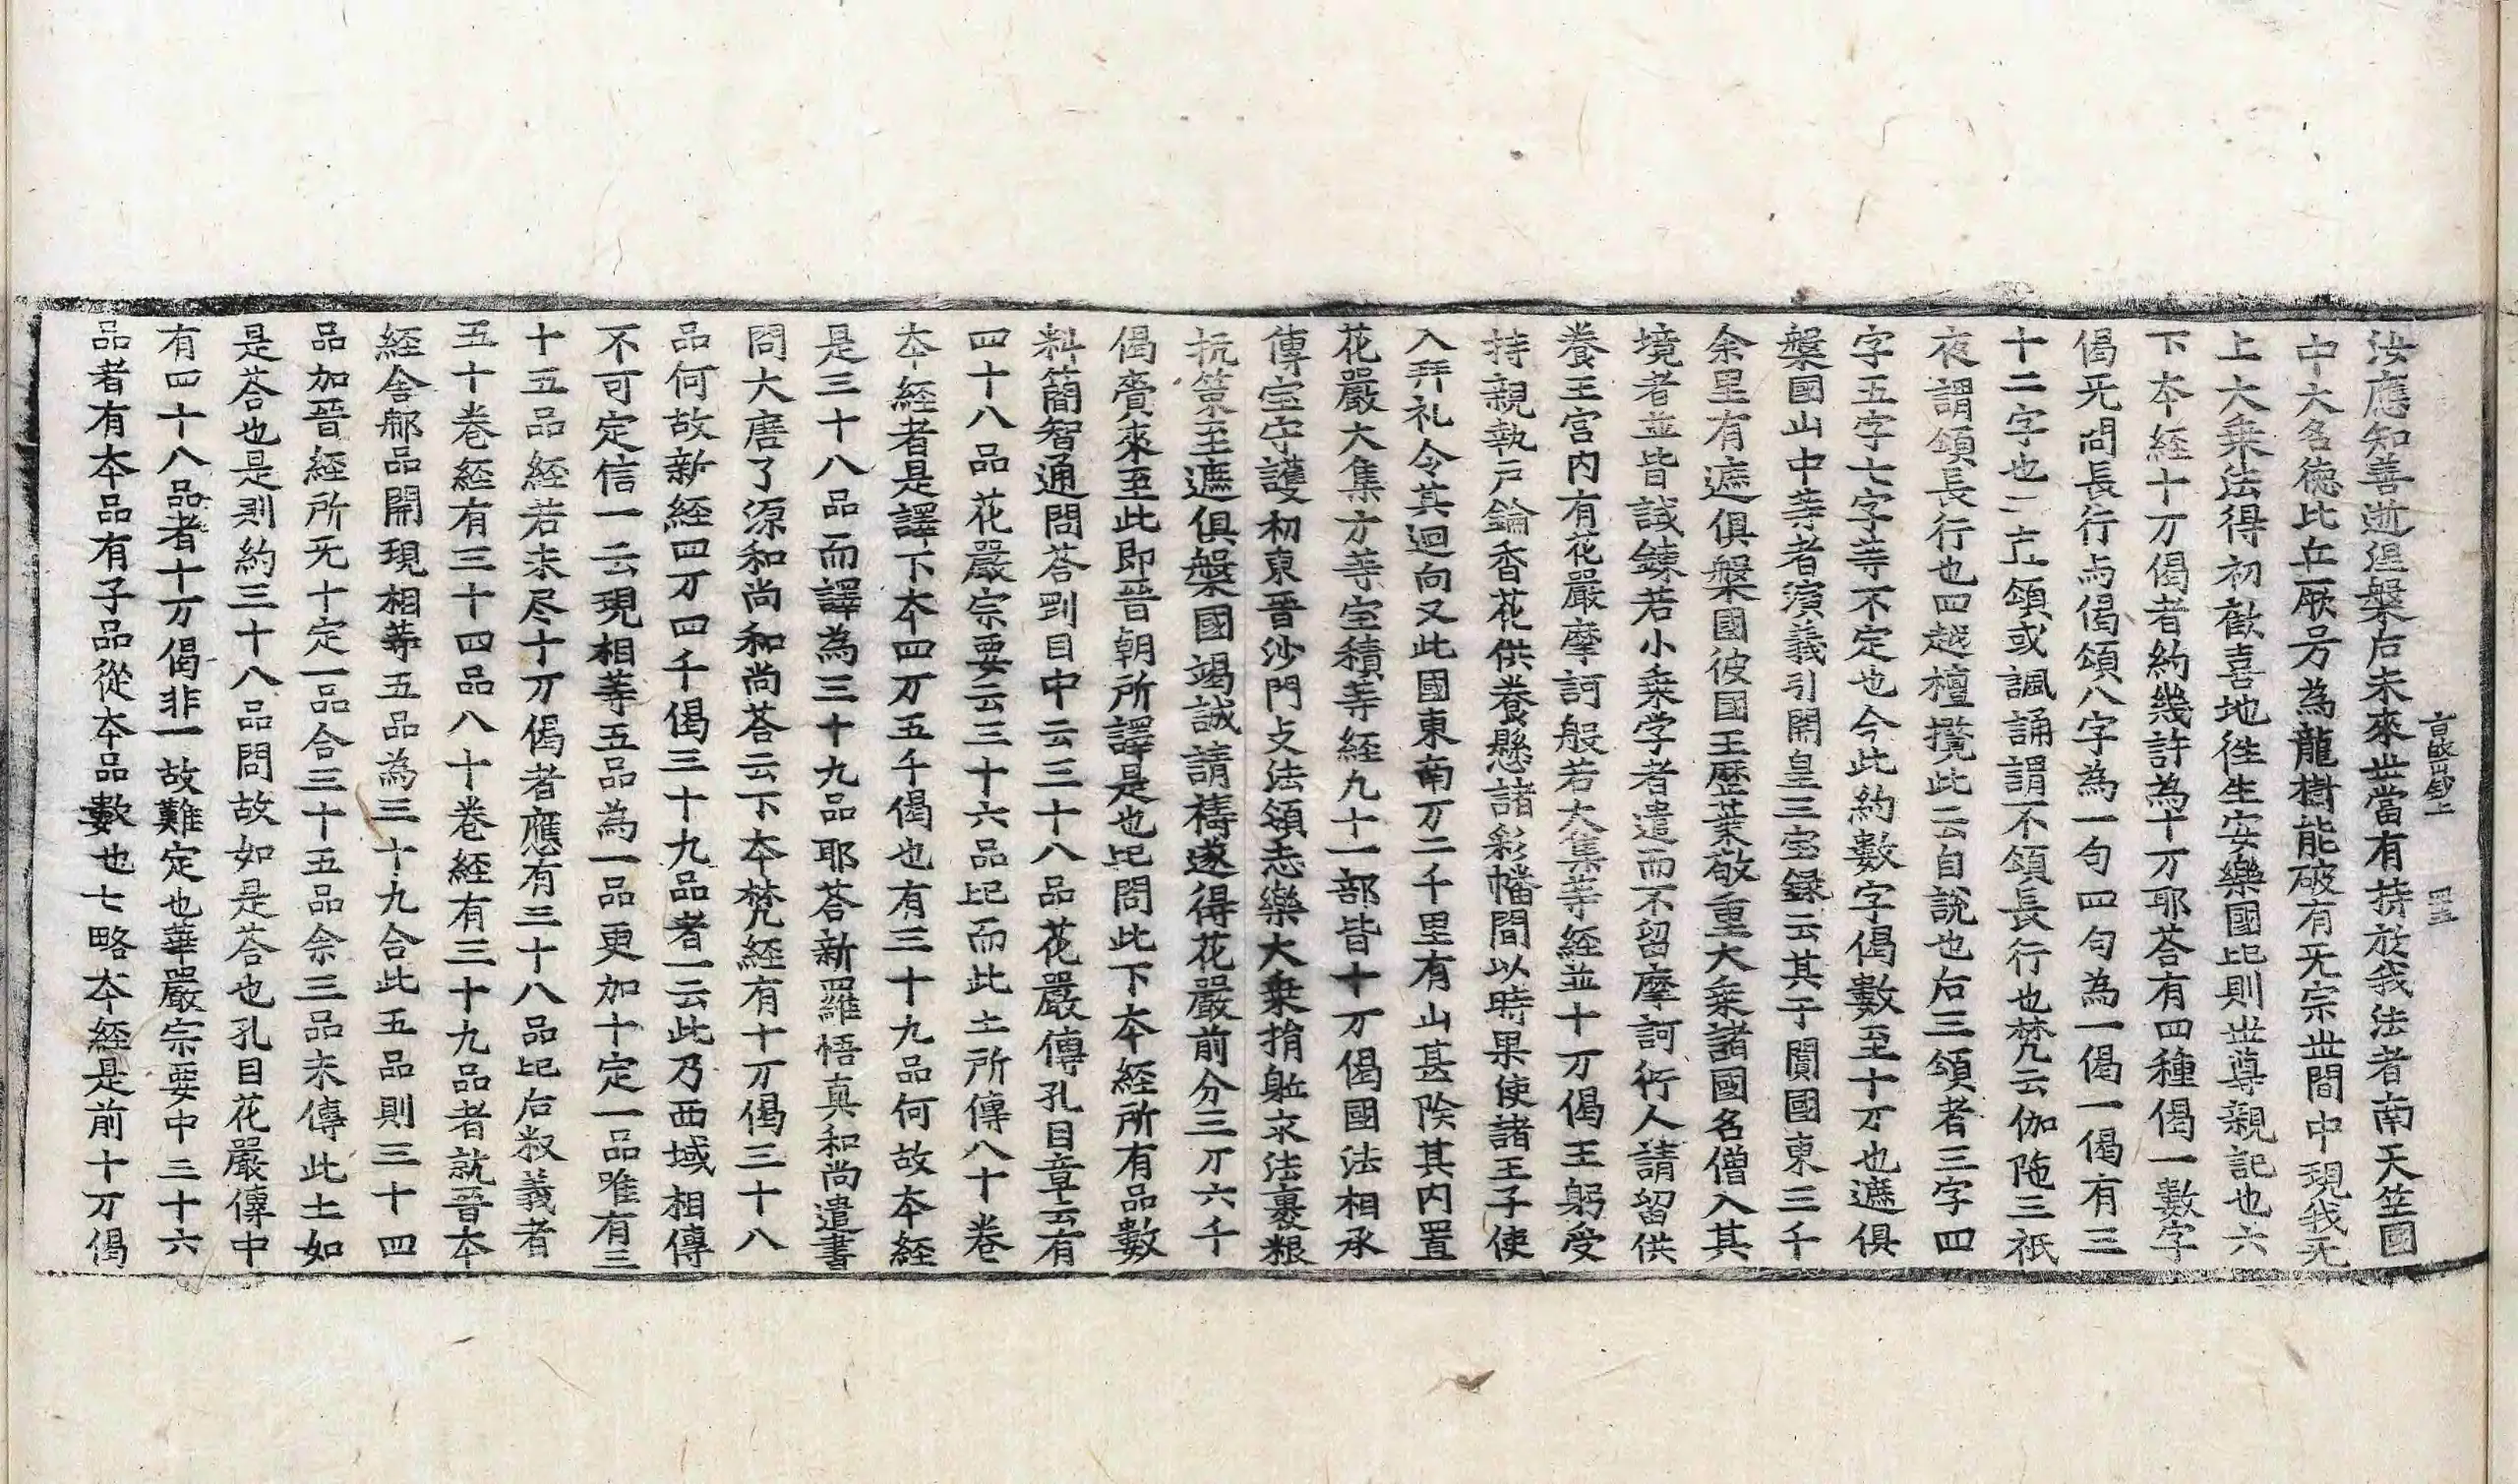 汝應知善逝涅槃后未來世當有持於我法者南天竺國
中大名德比丘厥号為龍樹能破有无宗世間中現我无
上大乗法得初歡喜地徃生安樂國比則世尊親記也六
下夲経十万偈者約幾許為十万耶荅有四種偈一數字
偈旡問長行与偈頌八字為一句四句為一偈一偈有三
十二字也二古頌或諷誦謂不頌長行也梵云伽陁三祇
夜謂頌長行也四越檀攬此云自說也后三頌者三字四
字五字七字等不定也今此約數字偈數至十万也遮俱
槃國山中等者演義引開皇三宝録云其于闐國東三千
余里有遮俱槃國彼国王歷葉敬重大乗諸國名僧入其
境者並皆試鍊若小乗学者遣而不留摩訶衍人請留供
養王宮内有花嚴摩訶般若大集等経並十万偈王躬受
持親執戸鑰香花供養懸諸彩幡間以時果使諸王子使
入拜礼令其迴向又此國東南万二千里有山甚険其内置
花嚴大集方等宝積等経九十一部皆十万偈國法相承
傳宝守護初東晋沙門支法領志樂大乗捎躰求法裹粮
抗策至遮俱槃國竭誠請禱遂得花嚴前分三万六千
偈賷來至此即晋朝所譯是也比問此下夲経所有品數
料簡智通問荅㓮目中云三十八品花嚴傳孔目章云有
四十八品花嚴宗要云三十六品比而此土所傳八十卷
夲経者是譯下夲四万五千偈也有三十九品何故夲経
是三十八品而譯為三十九品耶荅新羅悟真和尚遣書
問大唐了源和尚和尚荅云下夲梵経有十万偈三十八
品何故新経四万四千偈三十九品者一云此乃西域相傳
不可定信一云現相等五品為一品更加十定一品唯有三
十五品経若未尽十万偈者應有三十八品比后叙義者
五十卷経有三十四品八十卷経有三十九品者就晋夲
経舍那品開現相等五品為三十九合此五品則三十四
品加晋経所旡十定一品合三十五品余三品未傳此土如
是荅也是則約三十八品問故如是荅也孔目花嚴傳中
有四十八品者十万偈非一故難定也華嚴宗要中三十六
品者有夲品有子品從夲品數也七略夲経是前十万偈